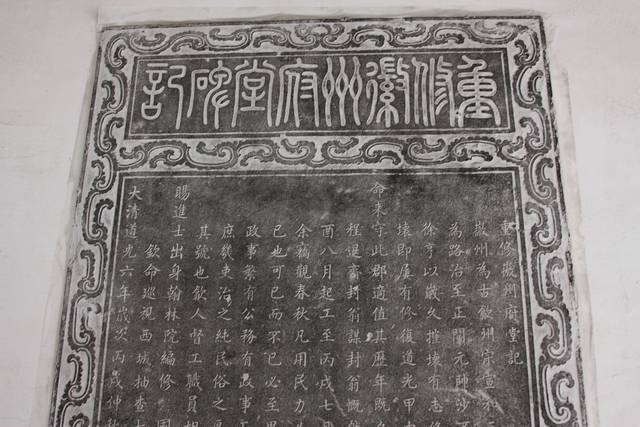 重修徽州府堂碑記
重修徽州府堂記
徽州為古歙州宋宣和三
為路治至正間元帥沙不
徐亨以歲久摧壞有志修
壞即屢有修復道光甲申
命来守此郡適值其歷年既久
程退齋封翁謀封翁慨然
酉八月起工至丙戌七月
余竊觀春秋凡用民力必
已也可已而不已必至男
政事繁有公務有政事
庶幾吏治之純民俗之厚
其號也歙人督工職員胡
賜進士出身翰林院編修 國
欽命巡視西城抽查
大清道光六年歲次丙戌仲秋